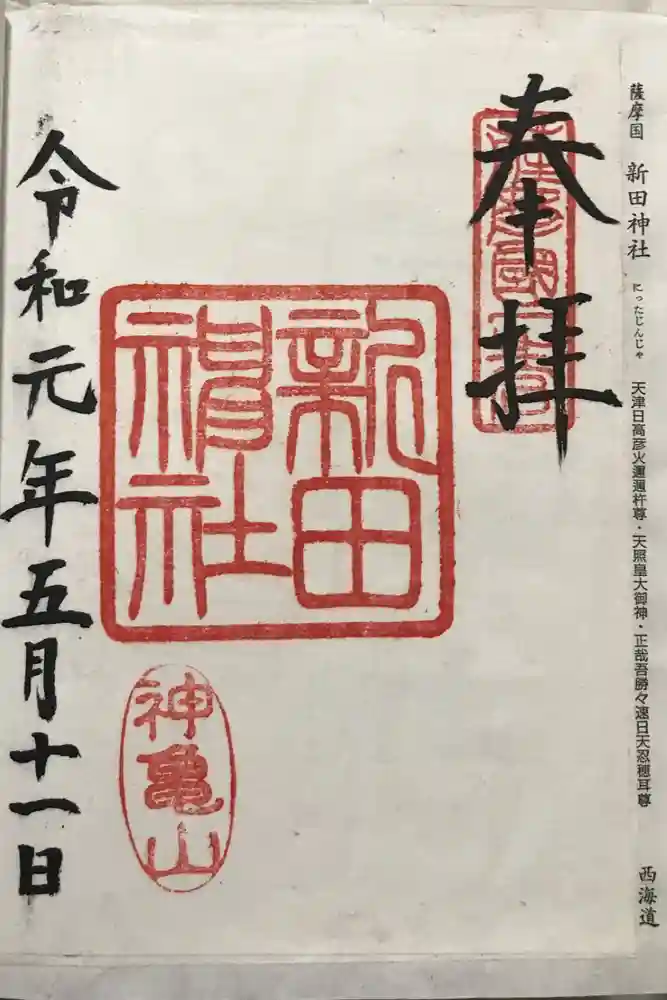 薩摩国 新田神社 にったじんじゃ 天津日高彦火瓊瓊杵尊・天照皇大御神・正哉吾勝々速日天忍穂耳尊 西海道
奉拝
薩摩國一宮
新田
神社
神亀山
令和元年五月十一日